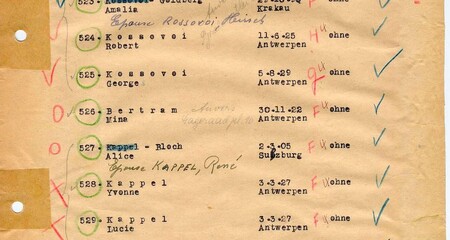 523. Kossovoi - Goldberg
Amalia Krakau
Epouse ROSSOVOI, Heinsch
524. Kossovoi 11.6.25 H ohne
Robert Antwerpen
525. Kossovoi 5.8.29 ohne
George Antwerpen
526. Bertram 30.11.22 F ohne
Mina Antwerpen
527. Kappel - Bloch 2.3.05 F ohne
Alice Sulzburg
Epouse KAPPEL, René
528. Kappel 3.3.27 F ohne
Yvonne Antwerpen
529. Kappel 3.3.27 F ohne
Lucie Antwerpen